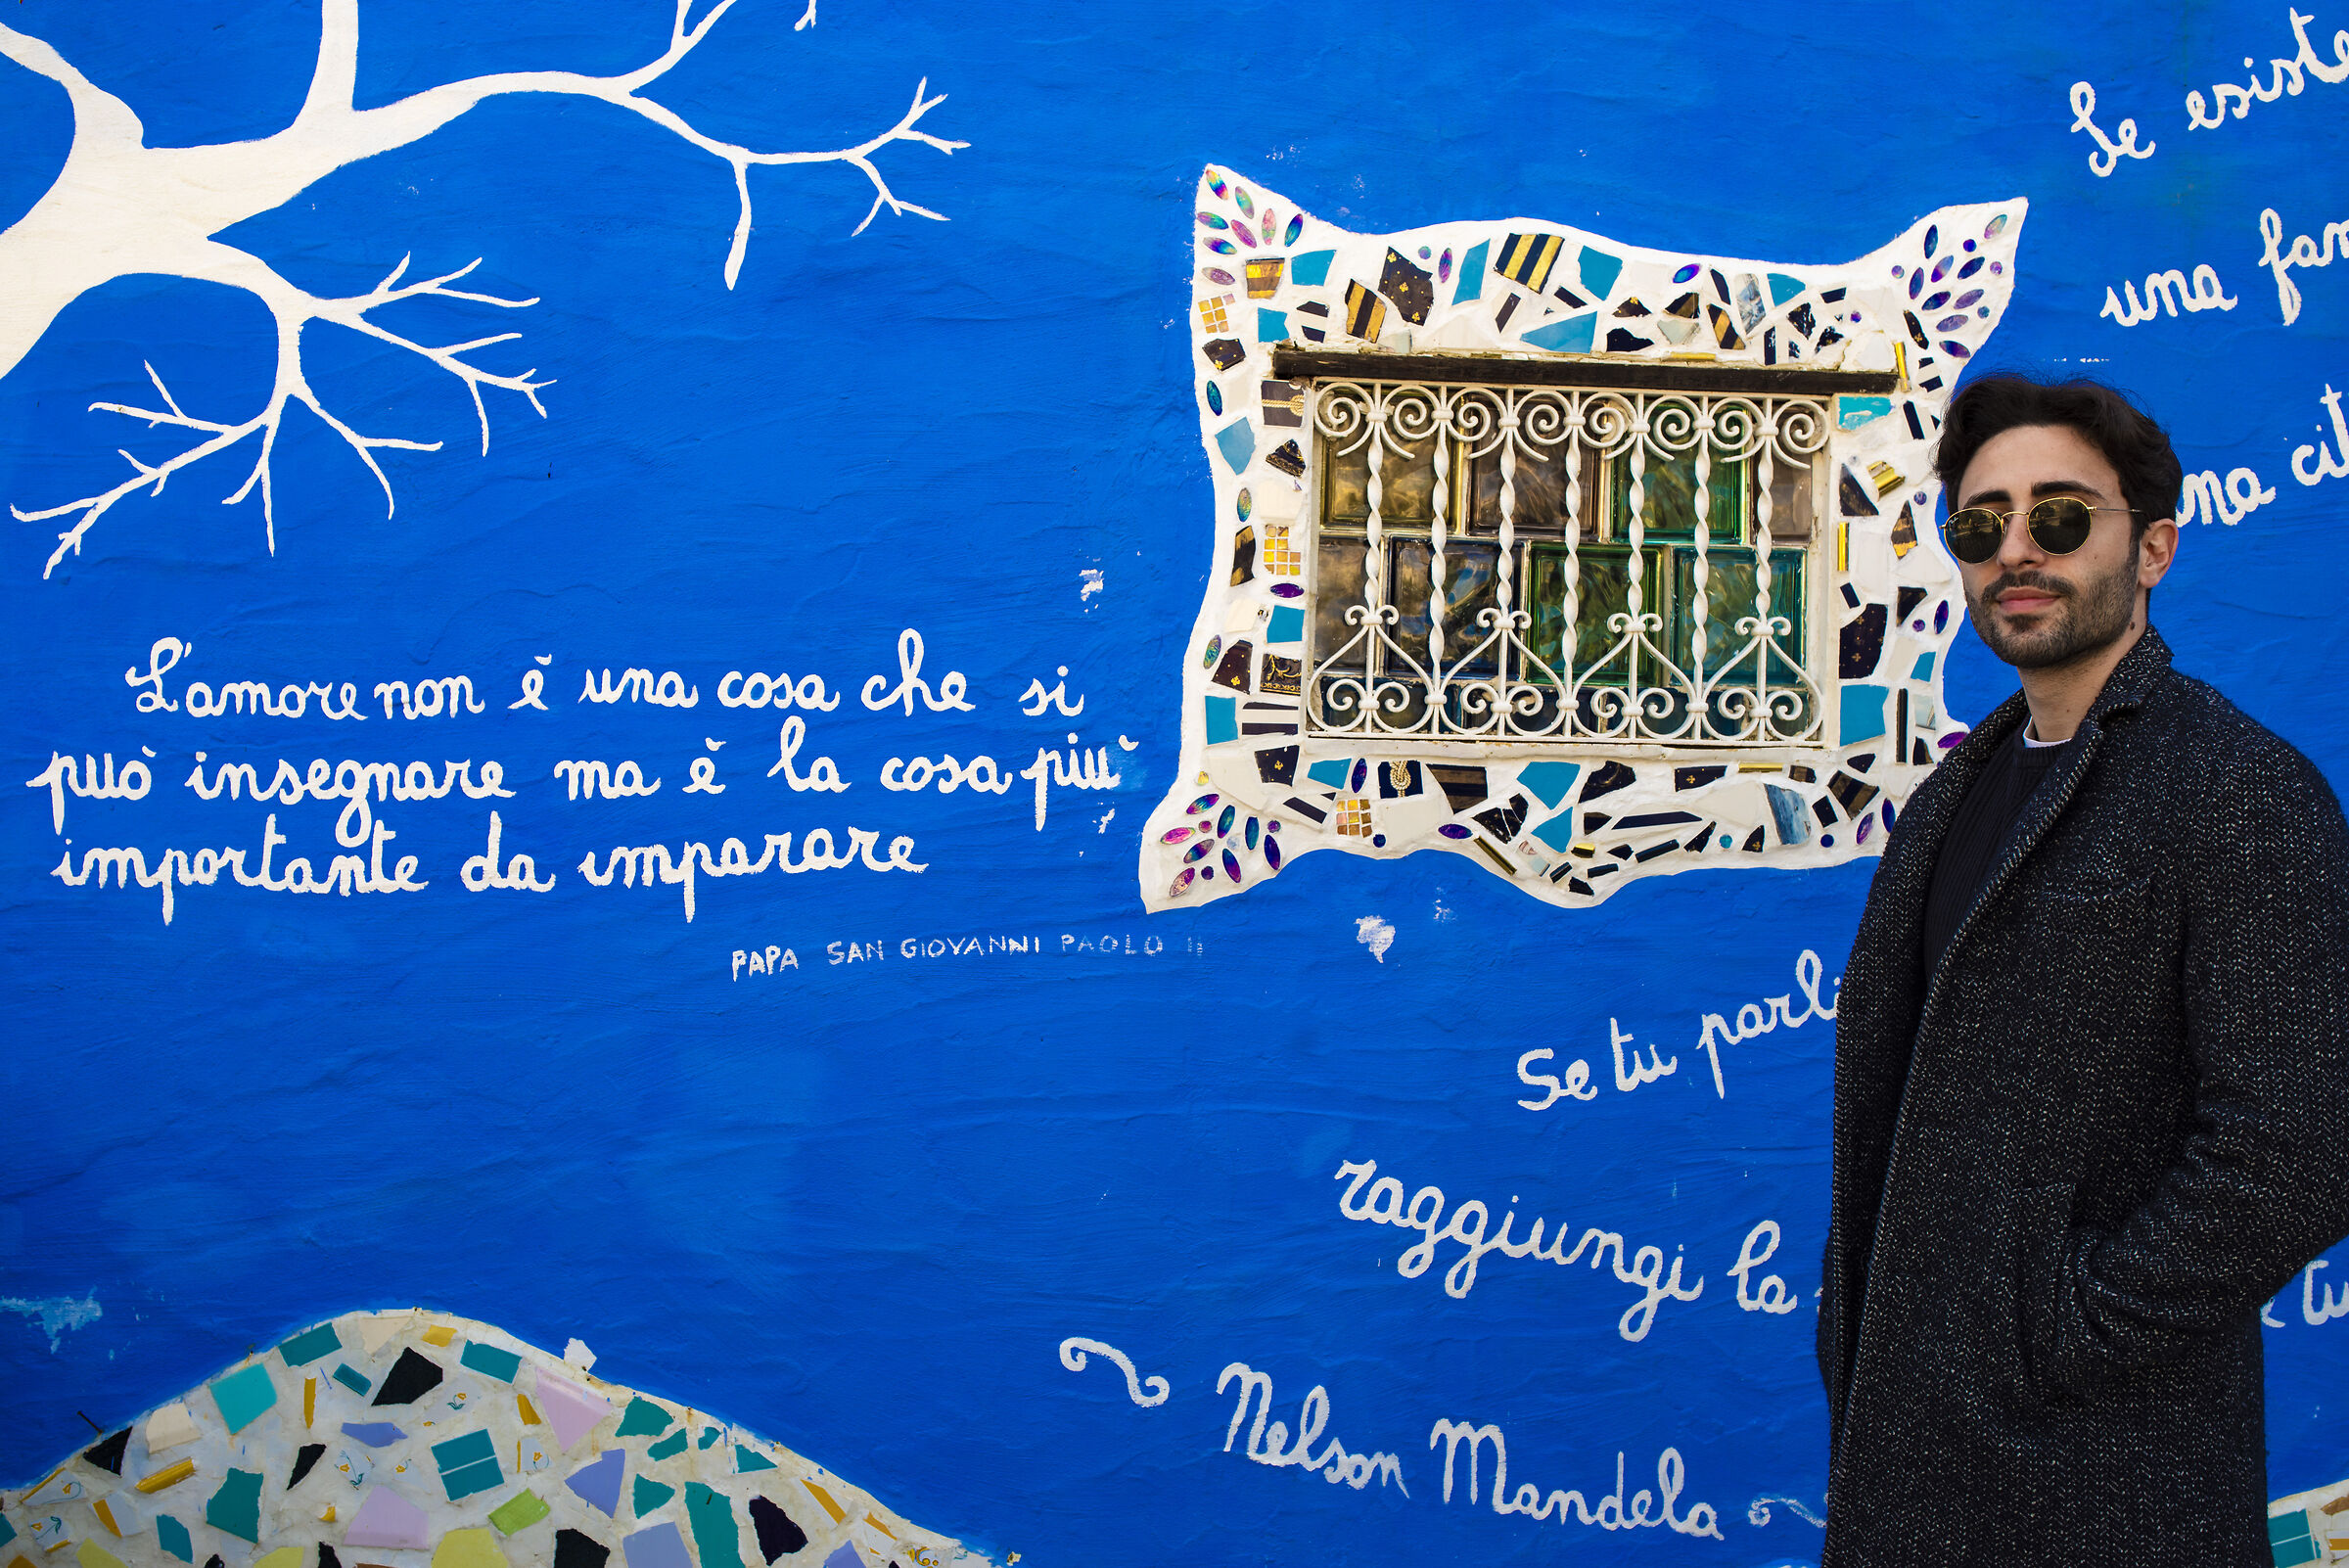 L'amore non è una cosa che si
può insegnare ma è la cosa più
importante da imparare
PAPA SAN GIOVANNI PAOLO II
Se esiste
una
una
Se tu parli
raggiungi la
Nelson Mandela